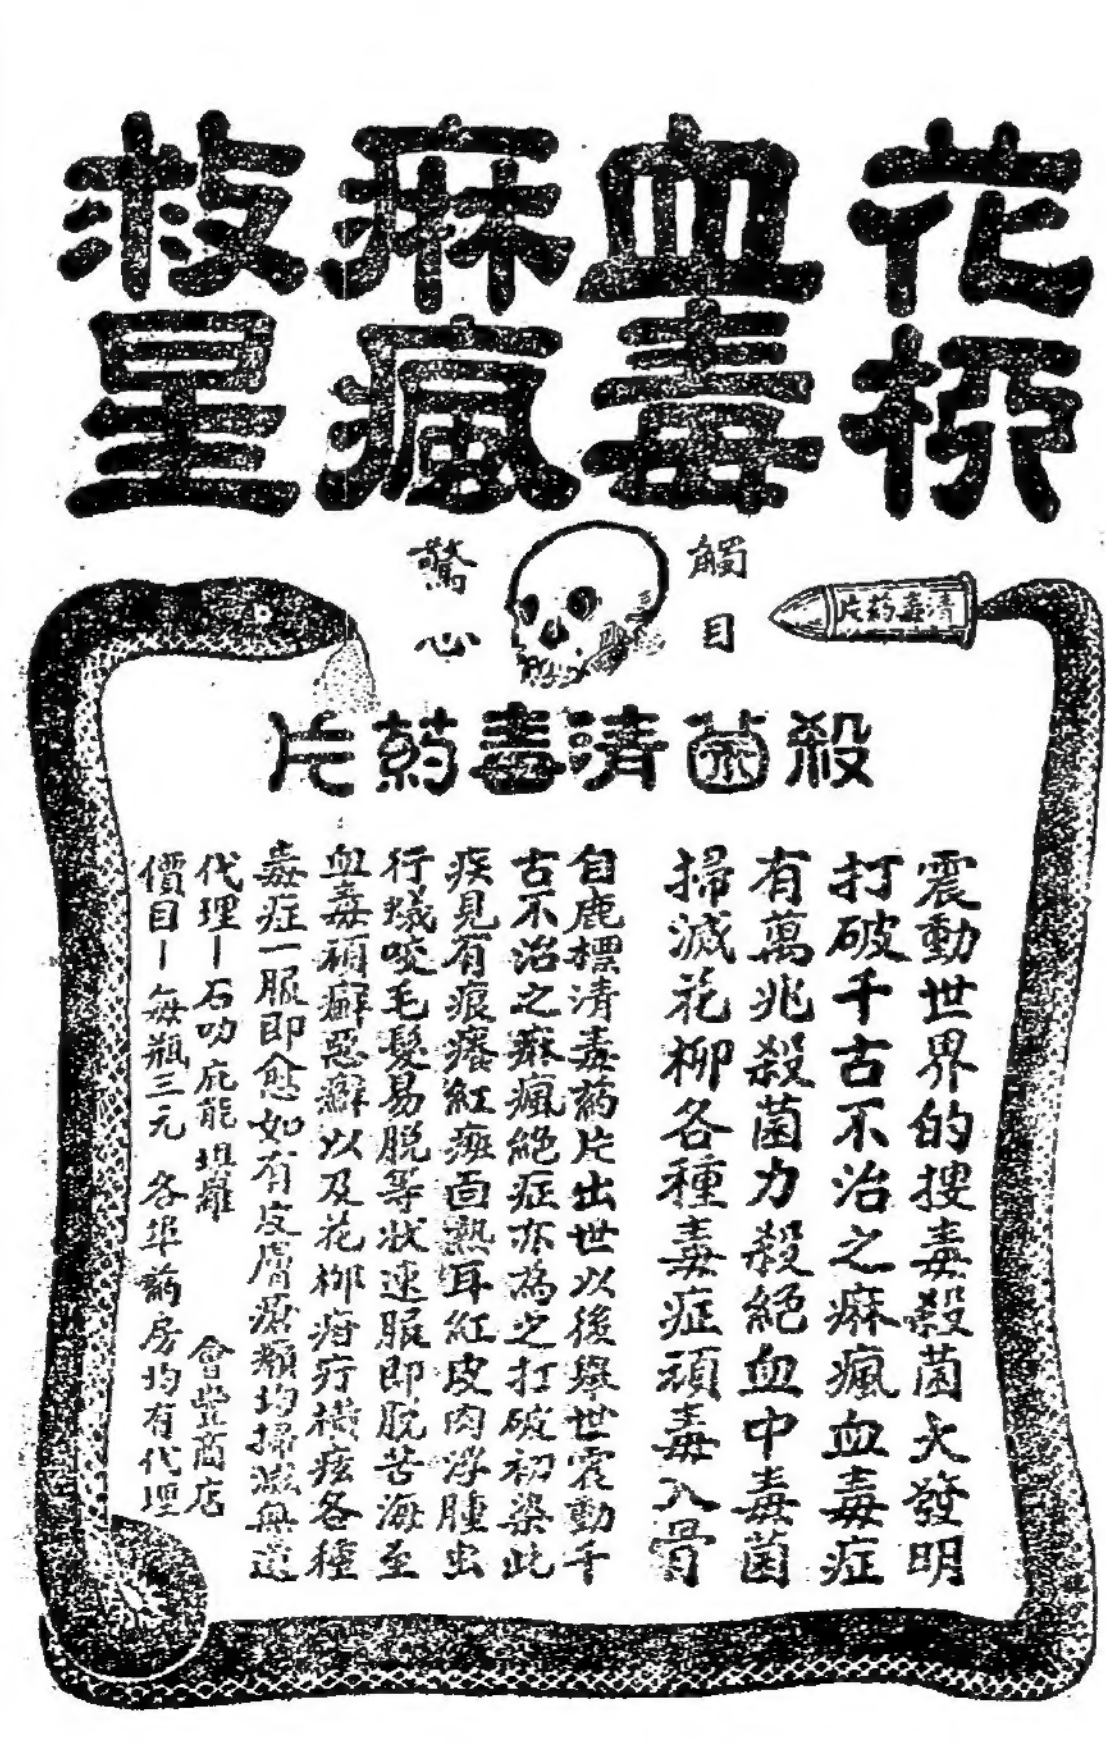 花柳
血毒
麻瘋
救星
觸目
驚心
清毒葯片
殺菌清毒葯片
震動世界的搜毒殺菌大發明
打破千古不治之麻瘋血毒症
有萬兆殺菌力殺絕血中毒菌
掃滅花柳各種毒症頑毒入骨
自鹿標清毒葯片出世以後舉世震動千
古不治之麻瘋絕症亦為之打破初染此
疾見有痕癢紅斑面熱耳紅皮肉浮腫虫
行蟻咬毛髮易脫等狀速服即脫苦海至
血毒頑癬惡癬以及花柳疳疔橫痃各種
毒症一服即愈如有皮膚瘡癩均掃滅無遺
代理—石叻庇能坦羅 會豐商店
價目—每瓶三元 各埠葯房均有代理